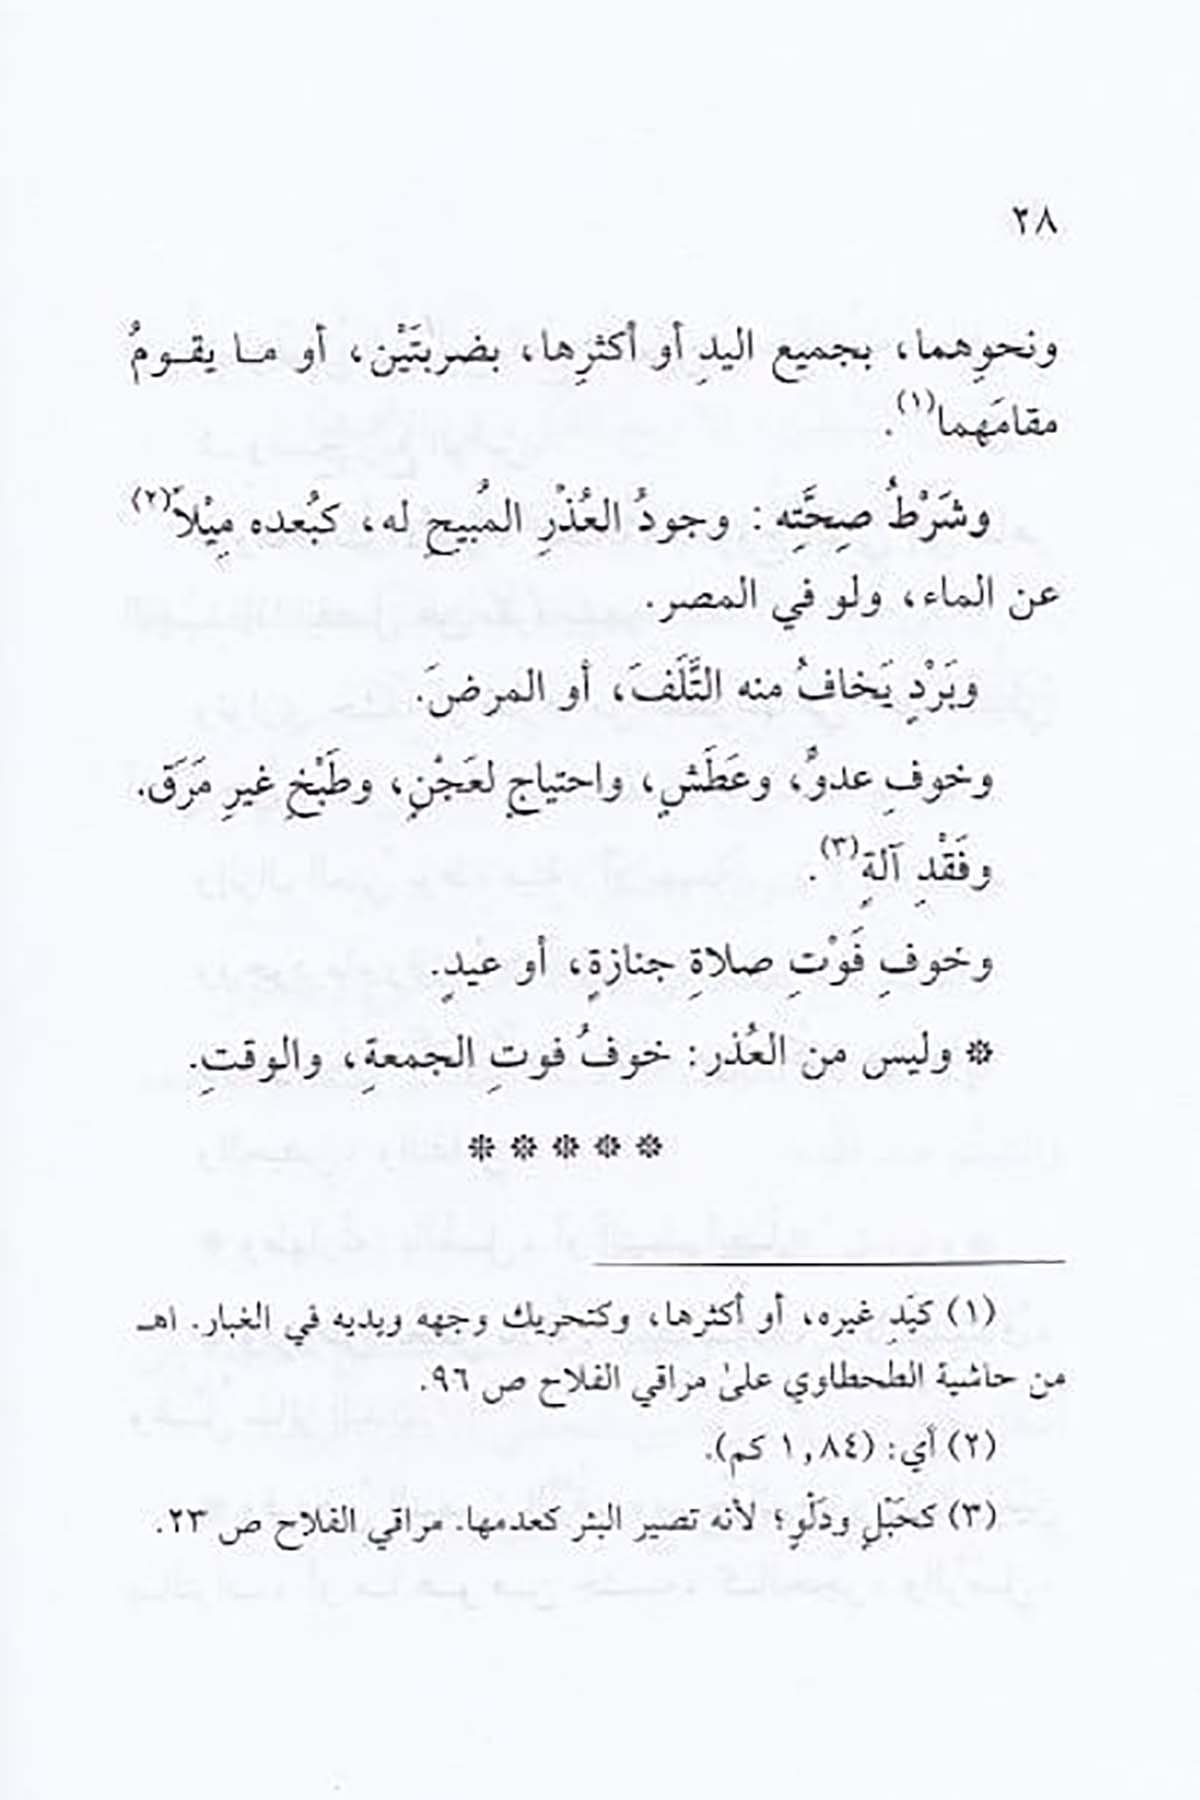 ٢٨
ونحوِهما، بجميع اليدِ أو أكثرِها، بضربتَيْن، أو مـا يقـومُ
مقامَهما(١).
وشَرْطُ صِحَّتِه: وجودُ العُذْرِ المُبيحِ له، كبُعده مِيْلاً(٢)
عن الماء، ولو في المصر.
وبَرْدٍ يَخافُ منه التَّلَفَ، أو المرضَ.
وخوفِ عدوٍّ، وعَطَشٍ، واحتياجٍ لعَجْنٍ، وطَبْخِ غيرِ مَرَق.
وفَقْدِ آلةٍ(٣).
وخوفِ فَوْتِ صلاةِ جنازةٍ، أو عيدٍ.
* وليس من العُذر: خوفُ فوتِ الجمعةِ، والوقتِ.
* * * * *
(١) كيَدِ غيره، أو أكثرها، وكتحريك وجهه ويديه في الغبار. اهـ
من حاشية الطحطاوي علىٰ مراقي الفلاح ص ٩٦.
(٢) أي: (١,٨٤ كم).
(٣) كحَبْلٍ ودَلْوٍ؛ لأنه تصير البئر كعدمها. مراقي الفلاح ص ٢٣.